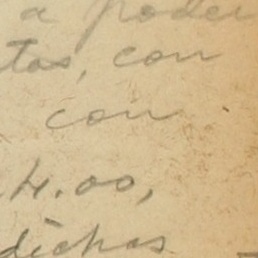 a poder
tas, con
con
4.00,
dichas